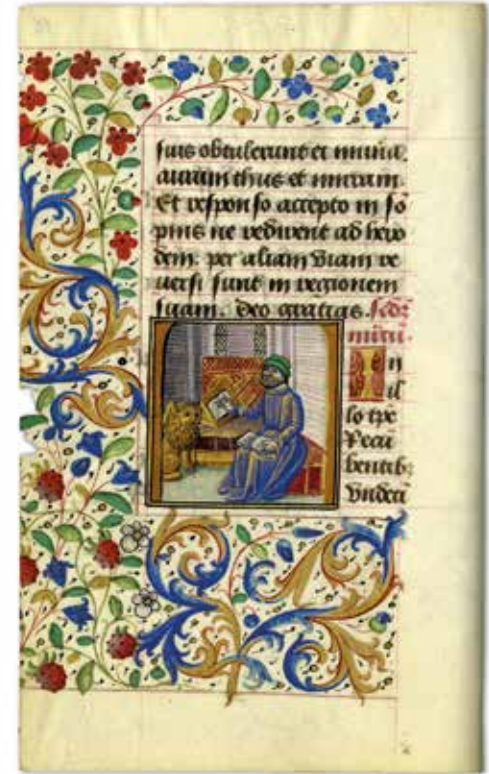 suis obtulerunt ei mun̄a.
aurum thus et mirram.
Et responso accepto in sō
pnis ne redirent ad hero
dem: per aliam viam re
uersi sunt in regionem
suam. Deo gratias. Scd̄z
In
il
lo tp̄e
Recū
bentib;
Vndeci